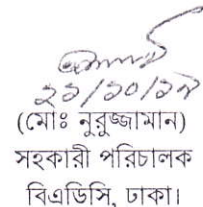 ২২/১০/১৭
(মোঃ নুরুজ্জামান)
সহকারী পরিচালক
বিএডিসি, ঢাকা।